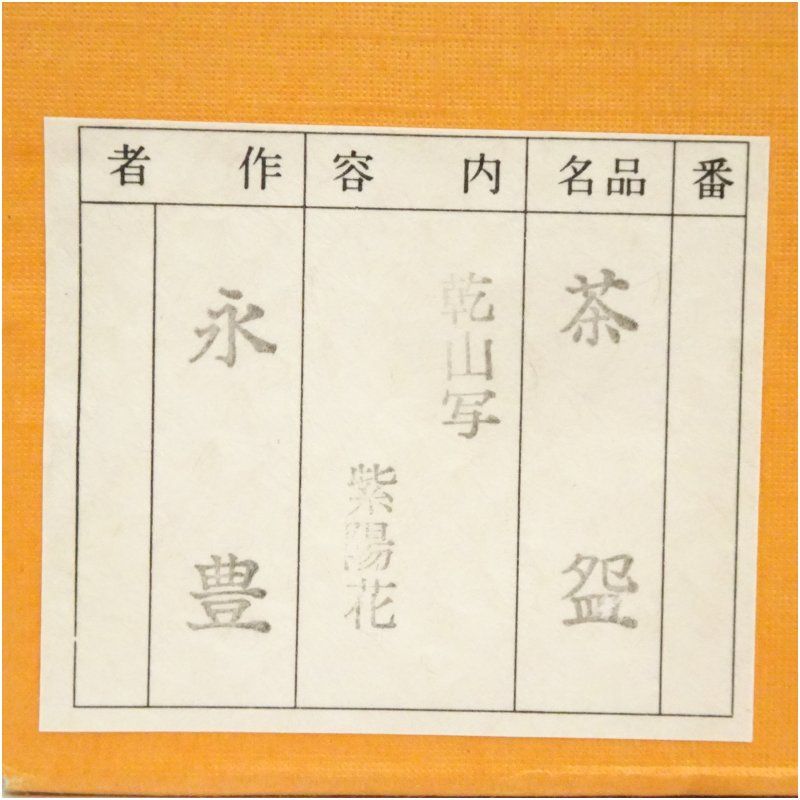 番
品名
茶盌
内容
乾山写
紫陽花
作者
永豊